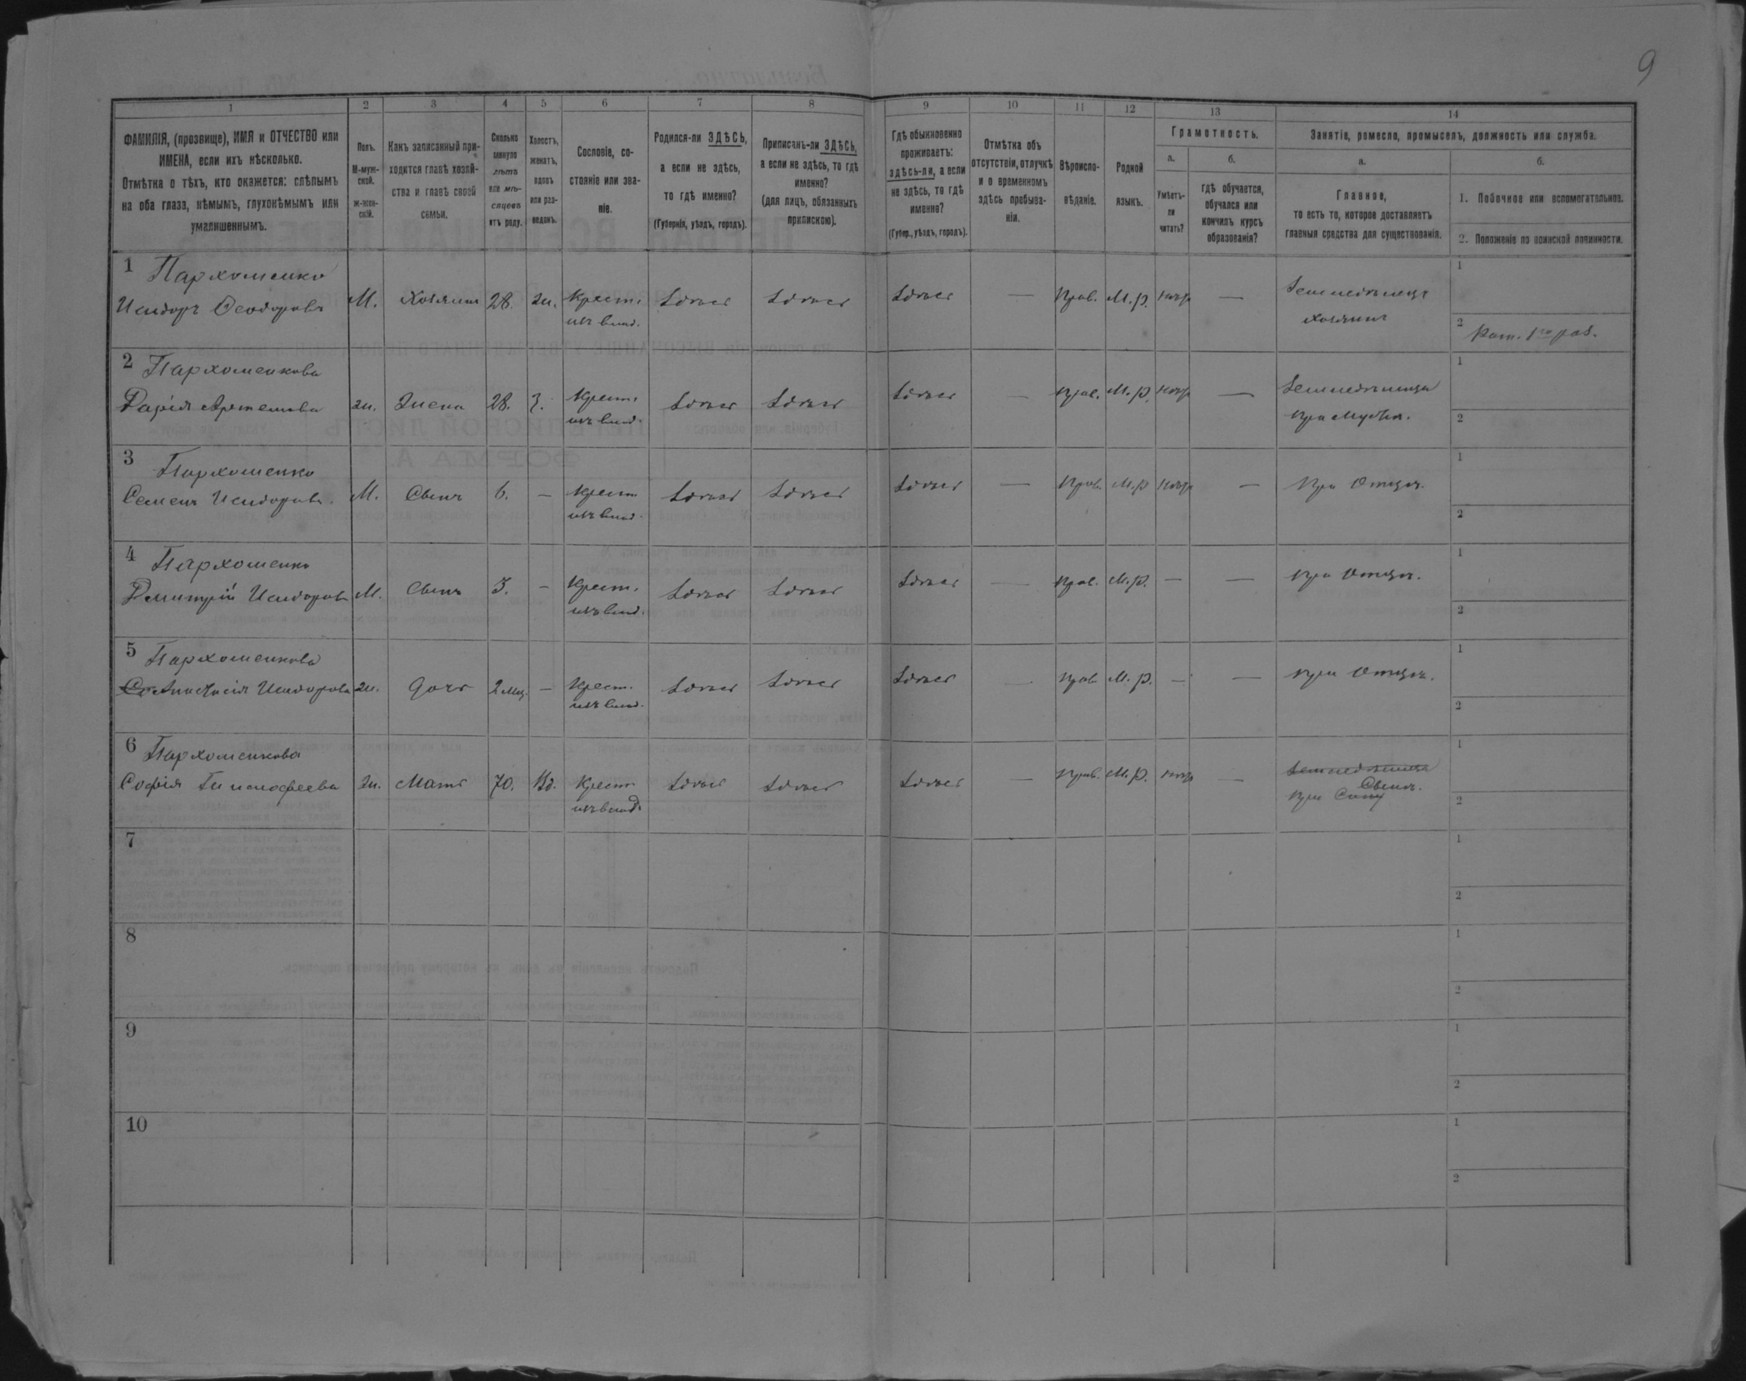 9
1 2 3 4 5 6 7 8 9 10 11 12 13 14
ФАМИЛІЯ, (прозвище), ИМЯ и ОТЧЕСТВО или
ИМЕНА, если ихъ нѣсколько.
Отмѣтка о тѣхъ, кто окажется: слѣпымъ
на оба глаза, нѣмымъ, глухонѣмымъ или
умалишеннымъ.
Полъ.
М-муж-
ской.
Ж-жен-
скій.
Какъ записанный при-
ходится главѣ хозяй-
ства и главѣ своей
семьи.
Сколько
минуло
лѣтъ
или мѣ-
сяцевъ
отъ роду.
Холостъ,
женатъ,
вдовъ
или раз-
веденъ.
Сословіе, со-
стояніе или зва-
ніе.
Родился-ли ЗДѢСЬ,
а если не здѣсь,
то гдѣ именно?
(Губернія, уѣздъ, городъ).
Приписанъ-ли ЗДѢСЬ,
а если не здѣсь, то гдѣ
именно?
(для лицъ, обязанныхъ
припискою).
Гдѣ обыкновенно
проживаетъ:
здѣсь-ли, а если
не здѣсь, то гдѣ
именно?
(Губер., уѣздъ, городъ).
Отмѣтка объ
отсутствіи, отлучкѣ
и о временномъ
здѣсь пребыва-
ніи.
Вѣроиспо-
вѣданіе.
Родной
языкъ.
Грамотность.
а.
Умѣетъ-
ли
читать?
б.
гдѣ обучается,
обучался или
кончилъ курсъ
образованія?
Занятіе, ремесло, промыселъ, должность или служба.
а.
Главное,
то есть то, которое доставляетъ
главныя средства для существованія.
б.
1. Побочное или вспомогательное.
2. Положеніе по воинской повинности.
1 Пархоменко
Исидоръ Феодоровъ М. Хозяинъ 28. ж. Крест. Здѣсь Здѣсь Здѣсь — Прав. М.р. — Земледѣлецъ
изъ влад. хозяинъ
1
2
2 Пархоменкова
Дарія Артемова ж. Жена 28. З. Крест. Здѣсь Здѣсь Здѣсь — Прав. М.р. — Земледѣлица
изъ влад. при Мужѣ.
1
2
3 Пархоменко
Семенъ Исидоровъ. М. Сынъ 6. — Крест. Здѣсь Здѣсь Здѣсь — Прав. М.р. — При Отцѣ.
изъ влад.
1
2
4 Пархоменко
Дмитрій Исидоровъ М. Сынъ 3. — Крест. Здѣсь Здѣсь Здѣсь — Прав. М.р. — — При Отцѣ.
изъ влад.
1
2
5 Пархоменкова
Анастасія Исидорова ж. Дочь 2 мѣс. — Крест. Здѣсь Здѣсь Здѣсь — Прав. М.р. — — При Отцѣ.
изъ влад.
1
2
6 Пархоменкова
Софія Тимофеева ж. Мать 70. Вд. Крест. Здѣсь Здѣсь Здѣсь — Прав. М.р. — Земледѣлица
изъ влад. при Сынѣ
1
2
7
1
2
8
1
2
9
1
2
10
1
2